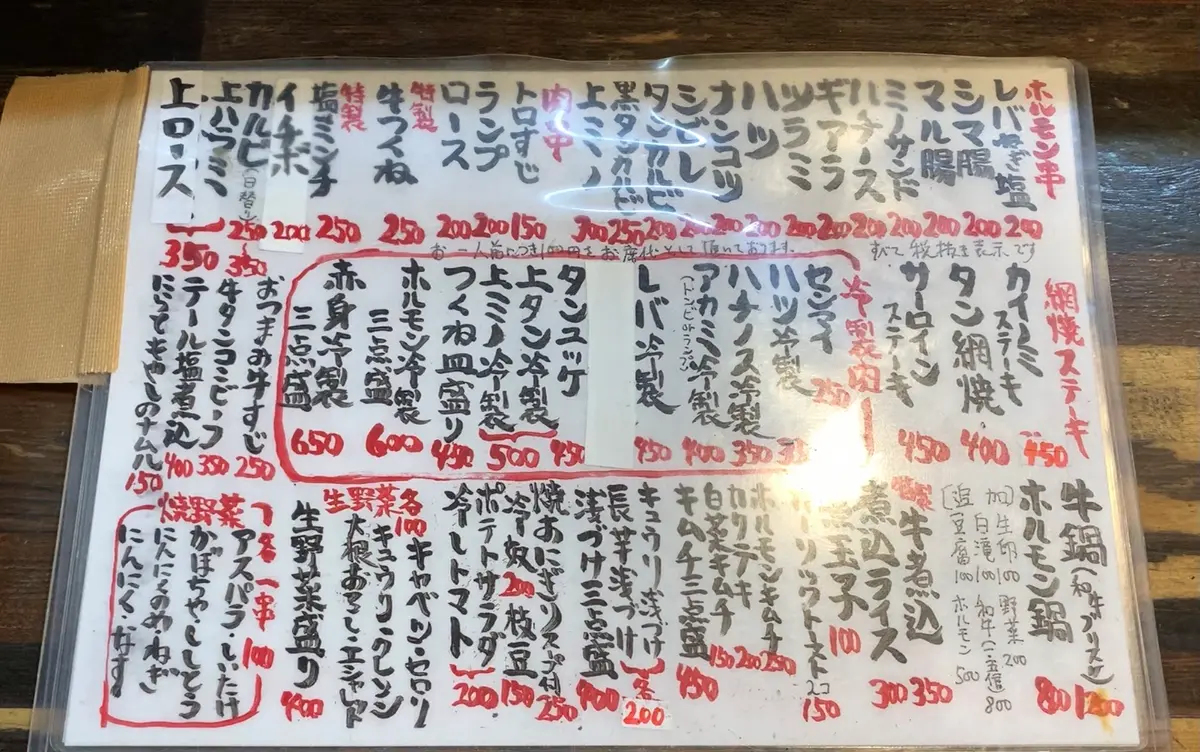 ホルモン串
レバねぎ塩 200
シマ腸 200
マル腸 200
ミノサンド 200
ハチノース 200
ギアラ 200
ツラミ 200
ハツ 200
ナンコツ 200
シビレ 200
タンカルビ 200
黒タンカルビ 250
上ミノ 300
肉串
トロすじ 150
ランプ 200
ロース 200
特製
牛つくね 250
特製
塩ミンチ 250
イチボ 200
カルビ(日替り) 250〜350
上ハラミ
上ロース 350
すべて税抜き表示です
お一人前につき100円をお席代として頂いております。
網焼ステーキ
カイノミステーキ 450
タン網焼 400
サーロインステーキ 450
冷製肉
センマイ 250
ハツ冷製
ハチノス冷製 350
アカミ冷製 400
(トンビorランプ)
レバ冷製 450
タンユッケ 450
上タン冷製
上ミノ冷製 500
つくね皿盛り 450
ホルモン冷製三点盛 600
赤身冷製三点盛 650
おつまみ牛すじ 250
牛タンコンビーフ 350
テール塩煮込 400
にらともやしのナムル 150
牛鍋(和牛プリスケ) 1200
ホルモン鍋 800
追加
生卵100 野菜200
白滝100 和牛(一・五倍)800
豆腐100 ホルモン500
特製
牛煮込 350
煮込ライス 300
煮玉子 100
トースト 2コ 150
ホルモンキムチ 250
カクテキ 200
白菜キムチ 150
キムチ三点盛 450
キュウリ浅づけ
長芋浅づけ
各200
浅づけ三点盛 400
焼おにぎり スープ付 250
冷奴 200 枝豆 150
ポテトサラダ
冷しトマト 200
生野菜 各100
キャベツ・セロリ
キュウリ・クレソン
大根おろし・エシャレット
生野菜盛り 400
焼野菜 各一串 100
アスパラ・しいたけ
かぼちゃ・ししとう
にんにくのめ・ねぎ
にんにく・なす